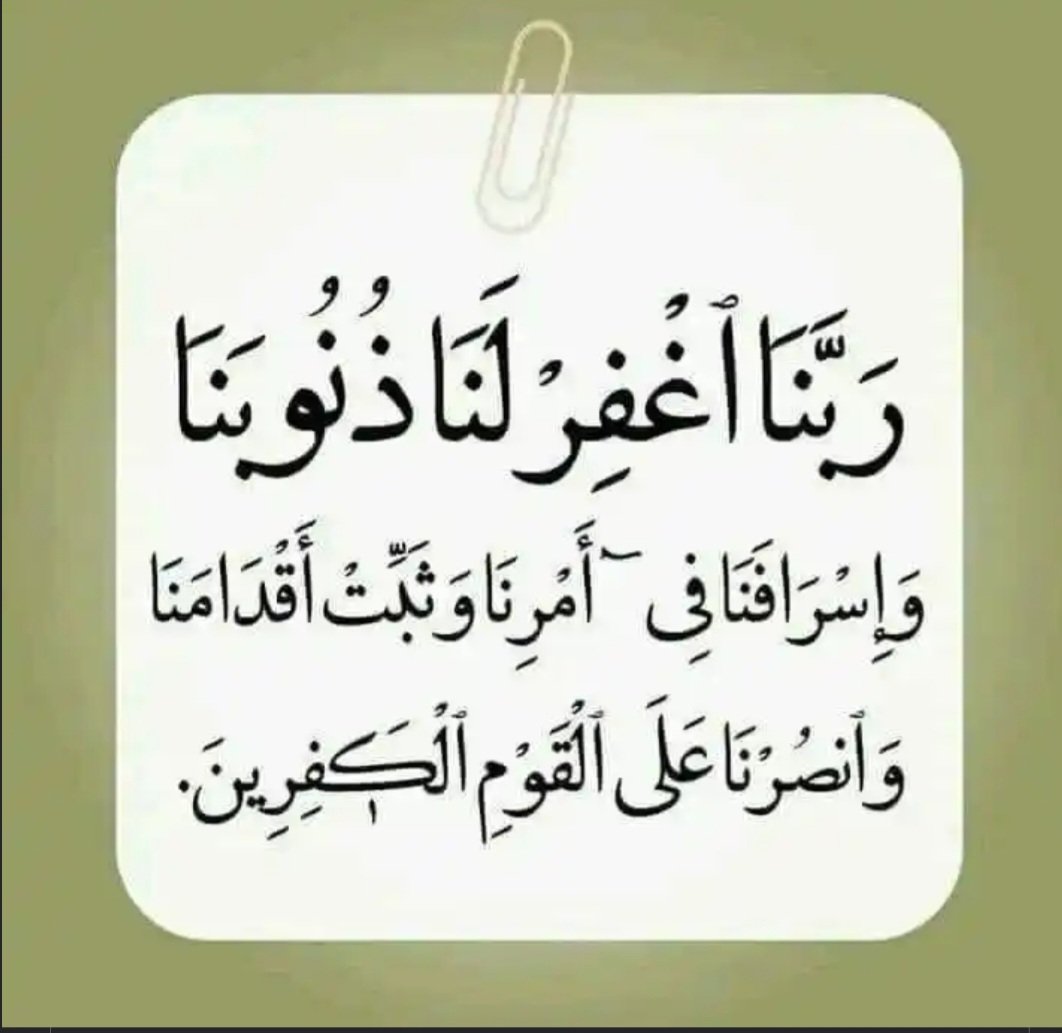 رَبَّنَا ٱغْفِرْ لَنَا ذُنُوبَنَا
وَإِسْرَافَنَا فِىٓ أَمْرِنَا وَثَبِّتْ أَقْدَامَنَا
وَٱنصُرْنَا عَلَى ٱلْقَوْمِ ٱلْكَـٰفِرِينَ.